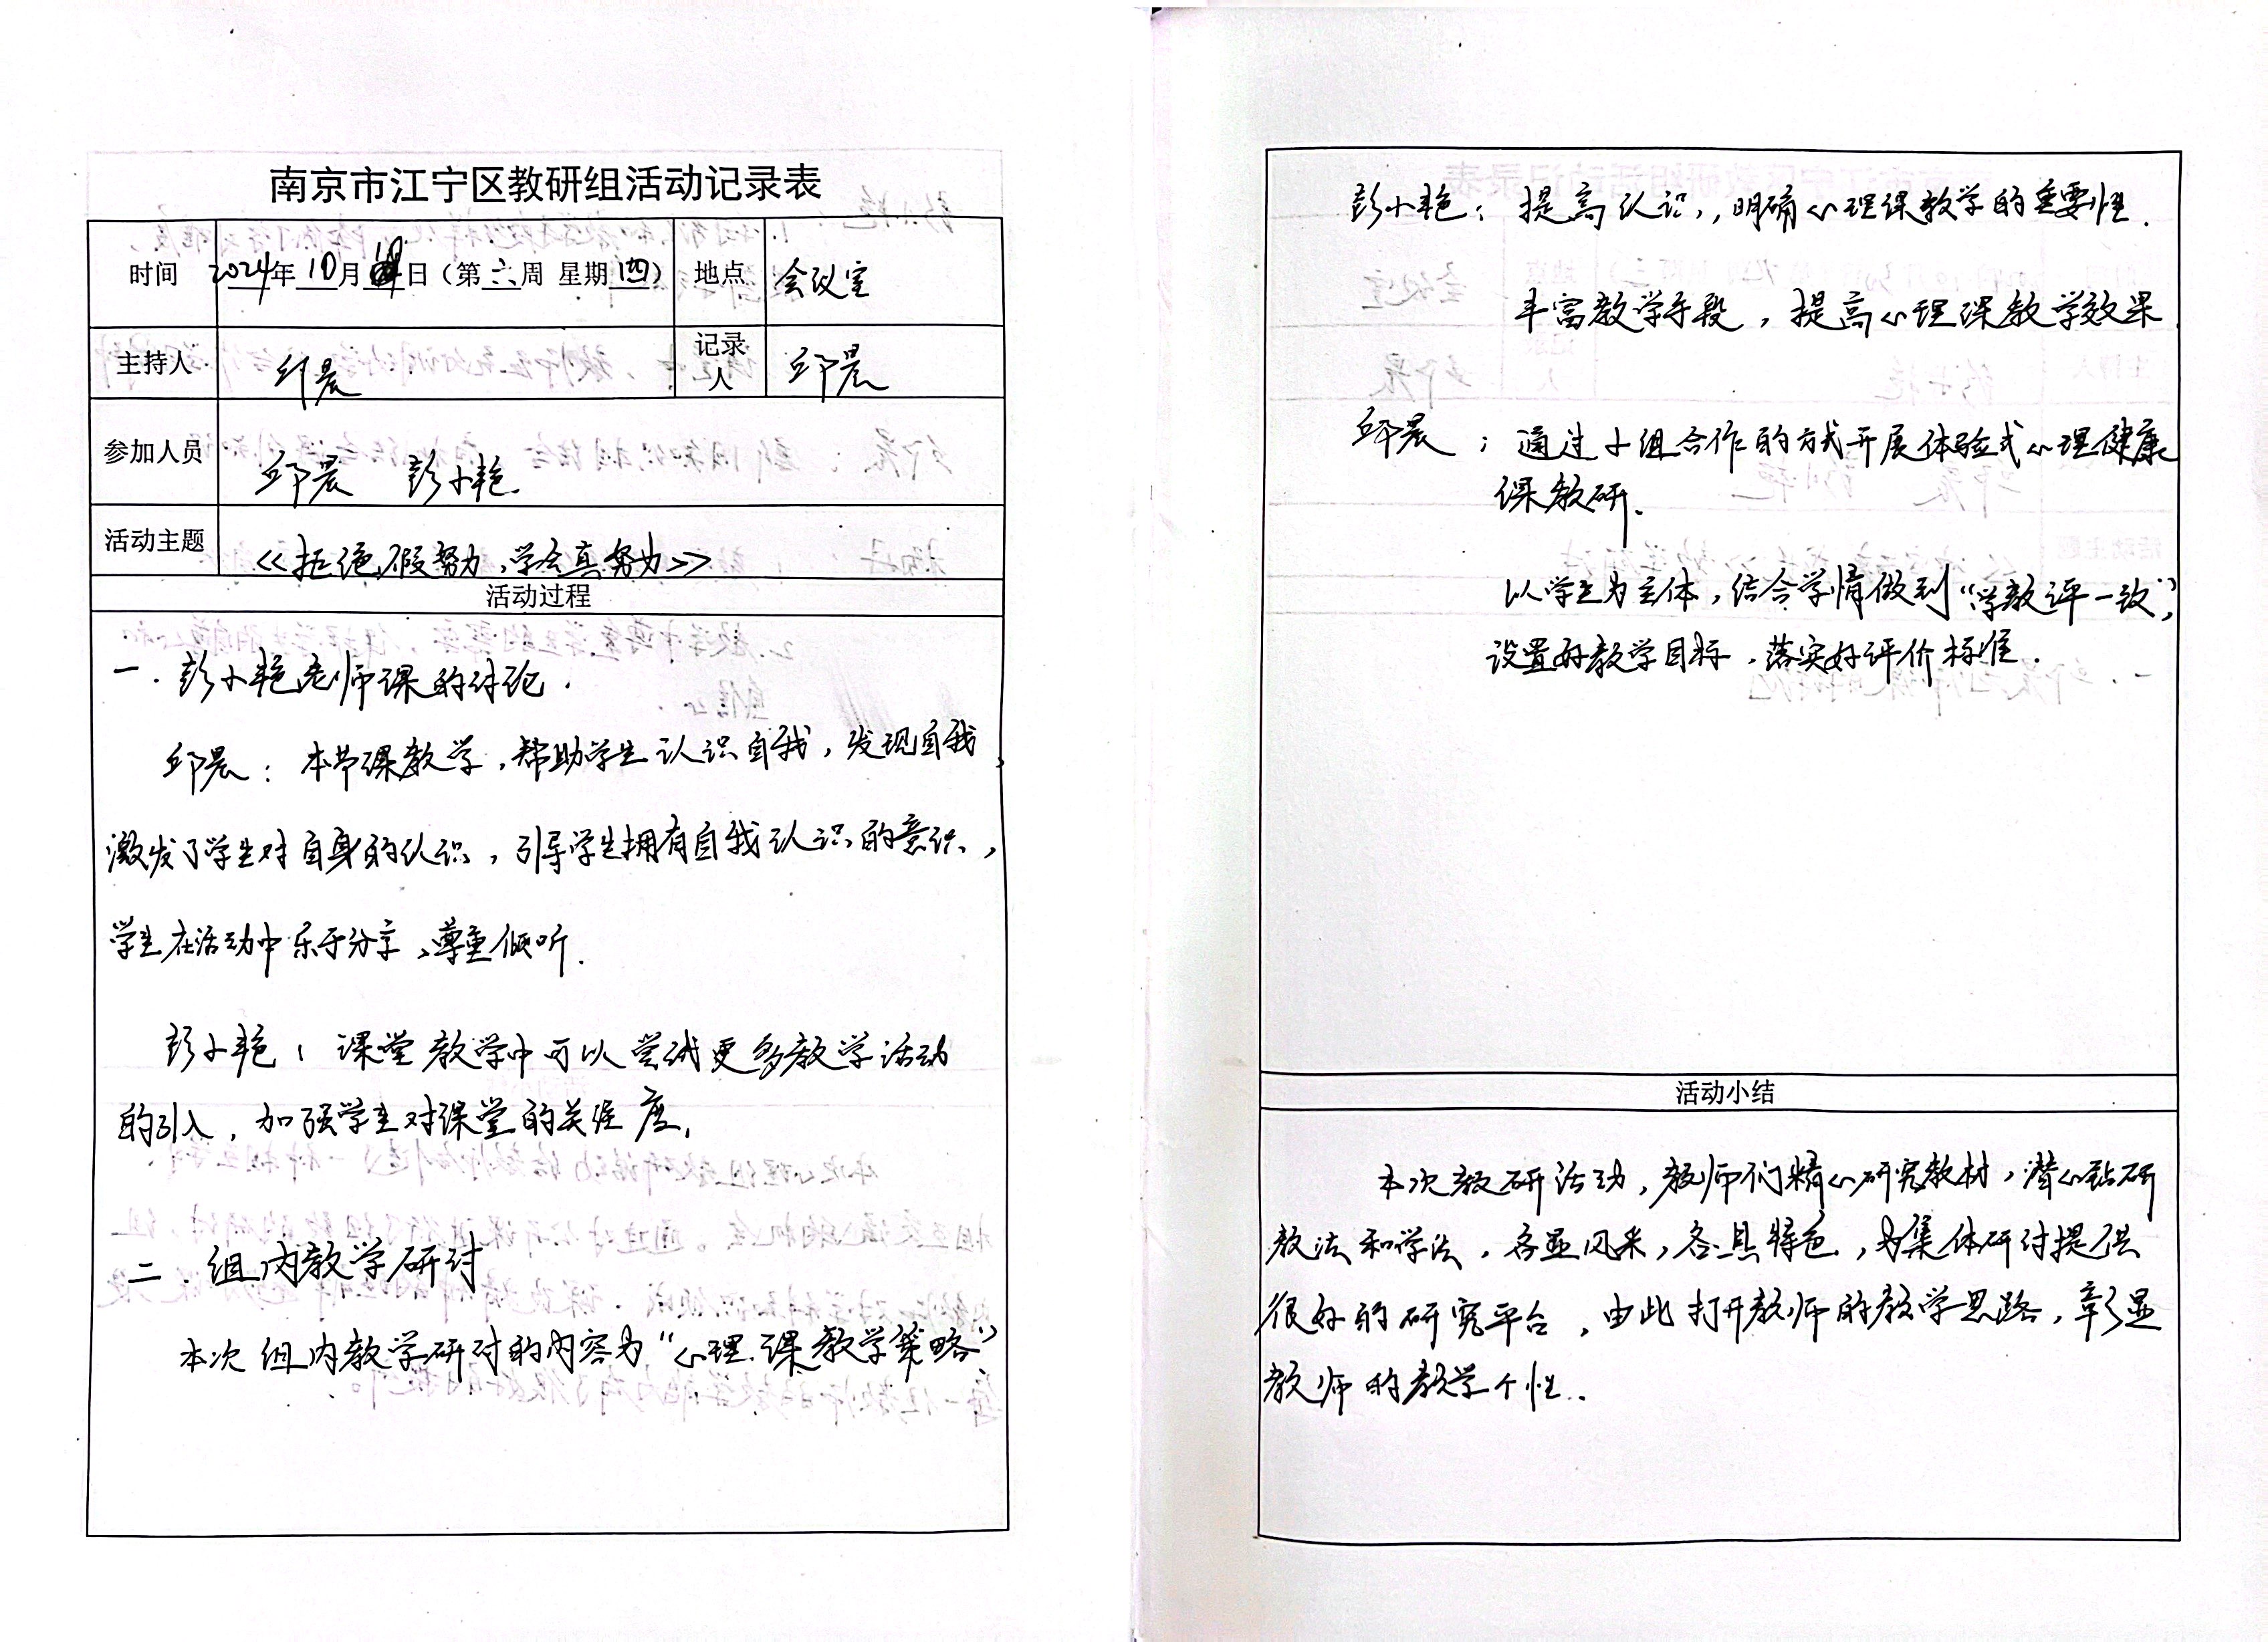 南京市江宁区教研组活动记录表
时间 2024年10月日（第六周 星期四） 地点 会议室
主持人 邱晨 记录人 邱晨
参加人员 邱晨 彭小艳.
活动主题 《拒绝假努力,学会真努力》
活动过程
一．彭小艳老师课的讨论．
邱晨：本节课教学,帮助学生认识自我，发现自我，
激发了学生对自身的认识，引导学生拥有自我认识的意识，
学生在活动中乐于分享、尊重倾听．
彭小艳：课堂教学中可以尝试更多教学活动
的引入，加强学生对课堂的关注度．
二．组内教学研讨
本次组内教学研讨的内容为“心理课教学策略”
彭小艳：提高认识,，明确心理课教学的重要性．
丰富教学手段，提高心理课教学效果．
邱晨：通过小组合作的方式开展体验式心理健康
课教研．
以学生为主体，结合学情做到“学教评一致”，
设置好教学目标，落实好评价标准．
活动小结
本次教研活动，教师们精心研究教材，潜心钻研
教法和学法，各亚风采，各具特色，为集体研讨提供
很好的研究平台，由此打开教师的教学思路，彰显
教师的教学个性．